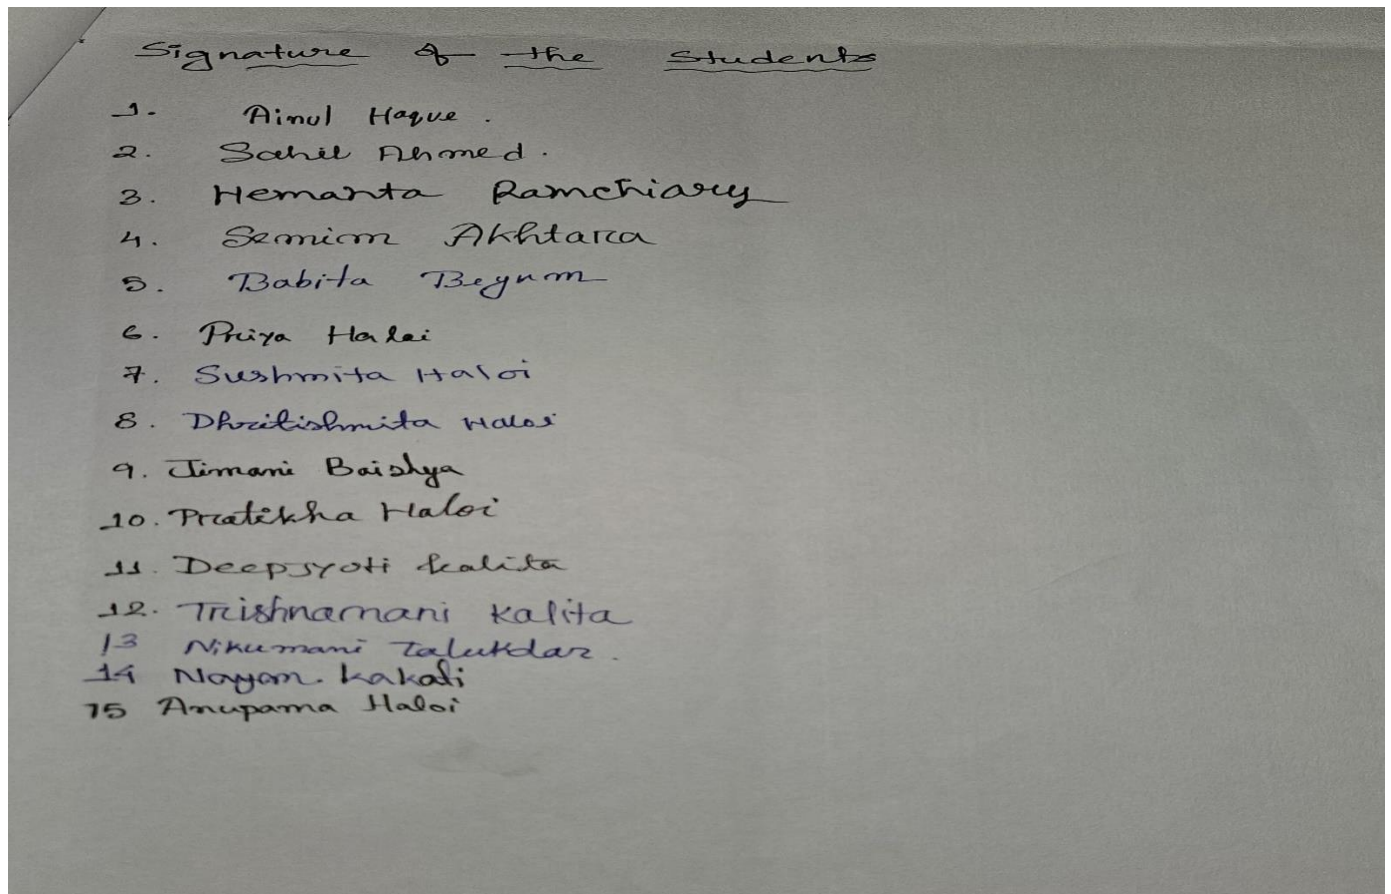 Signature of the Students
1. Ainul Haque.
2. Sahil Ahmed.
3. Hemanta Ramchiary
4. Semim Akhtara
5. Babita Begum
6. Priya Haloi
7. Sushmita Haloi
8. Dhritishmita Haloi
9. Jimani Baishya
10. Pratikha Haloi
11. Deepjyoti Kalita
12. Trishnamani Kalita
13 Nikumani Talukdar.
14 Nayan. Kakati
15 Anupama Haloi